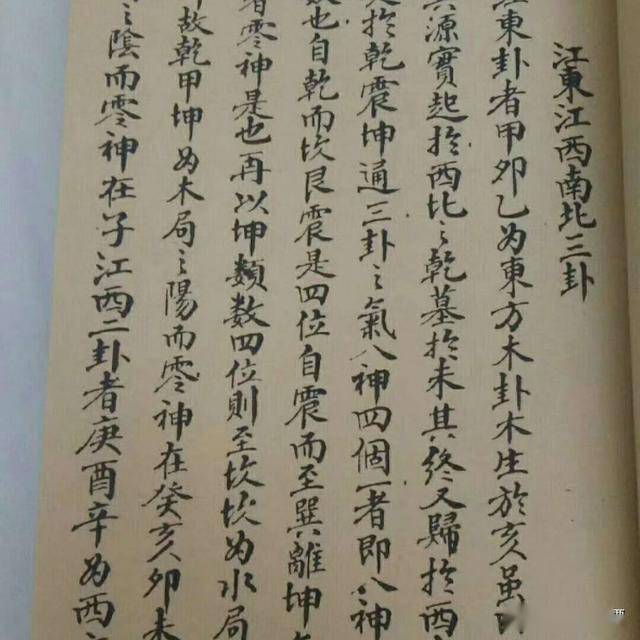 江東江西南北三卦
東卦者甲卯乙为東方木卦木生於亥虽
源實起於西北之乾墓於未其终又歸於西
於乾震坤通三卦之氣八神四個一者即八神
也自乾而坎艮震是四位自震而至巽離坤
零神是也再以坤類数四位則至坎坎为水局
故乾甲坤为木局之陽而零神在癸亥卯未
之陰而零神在子江西二卦者庚酉辛为西